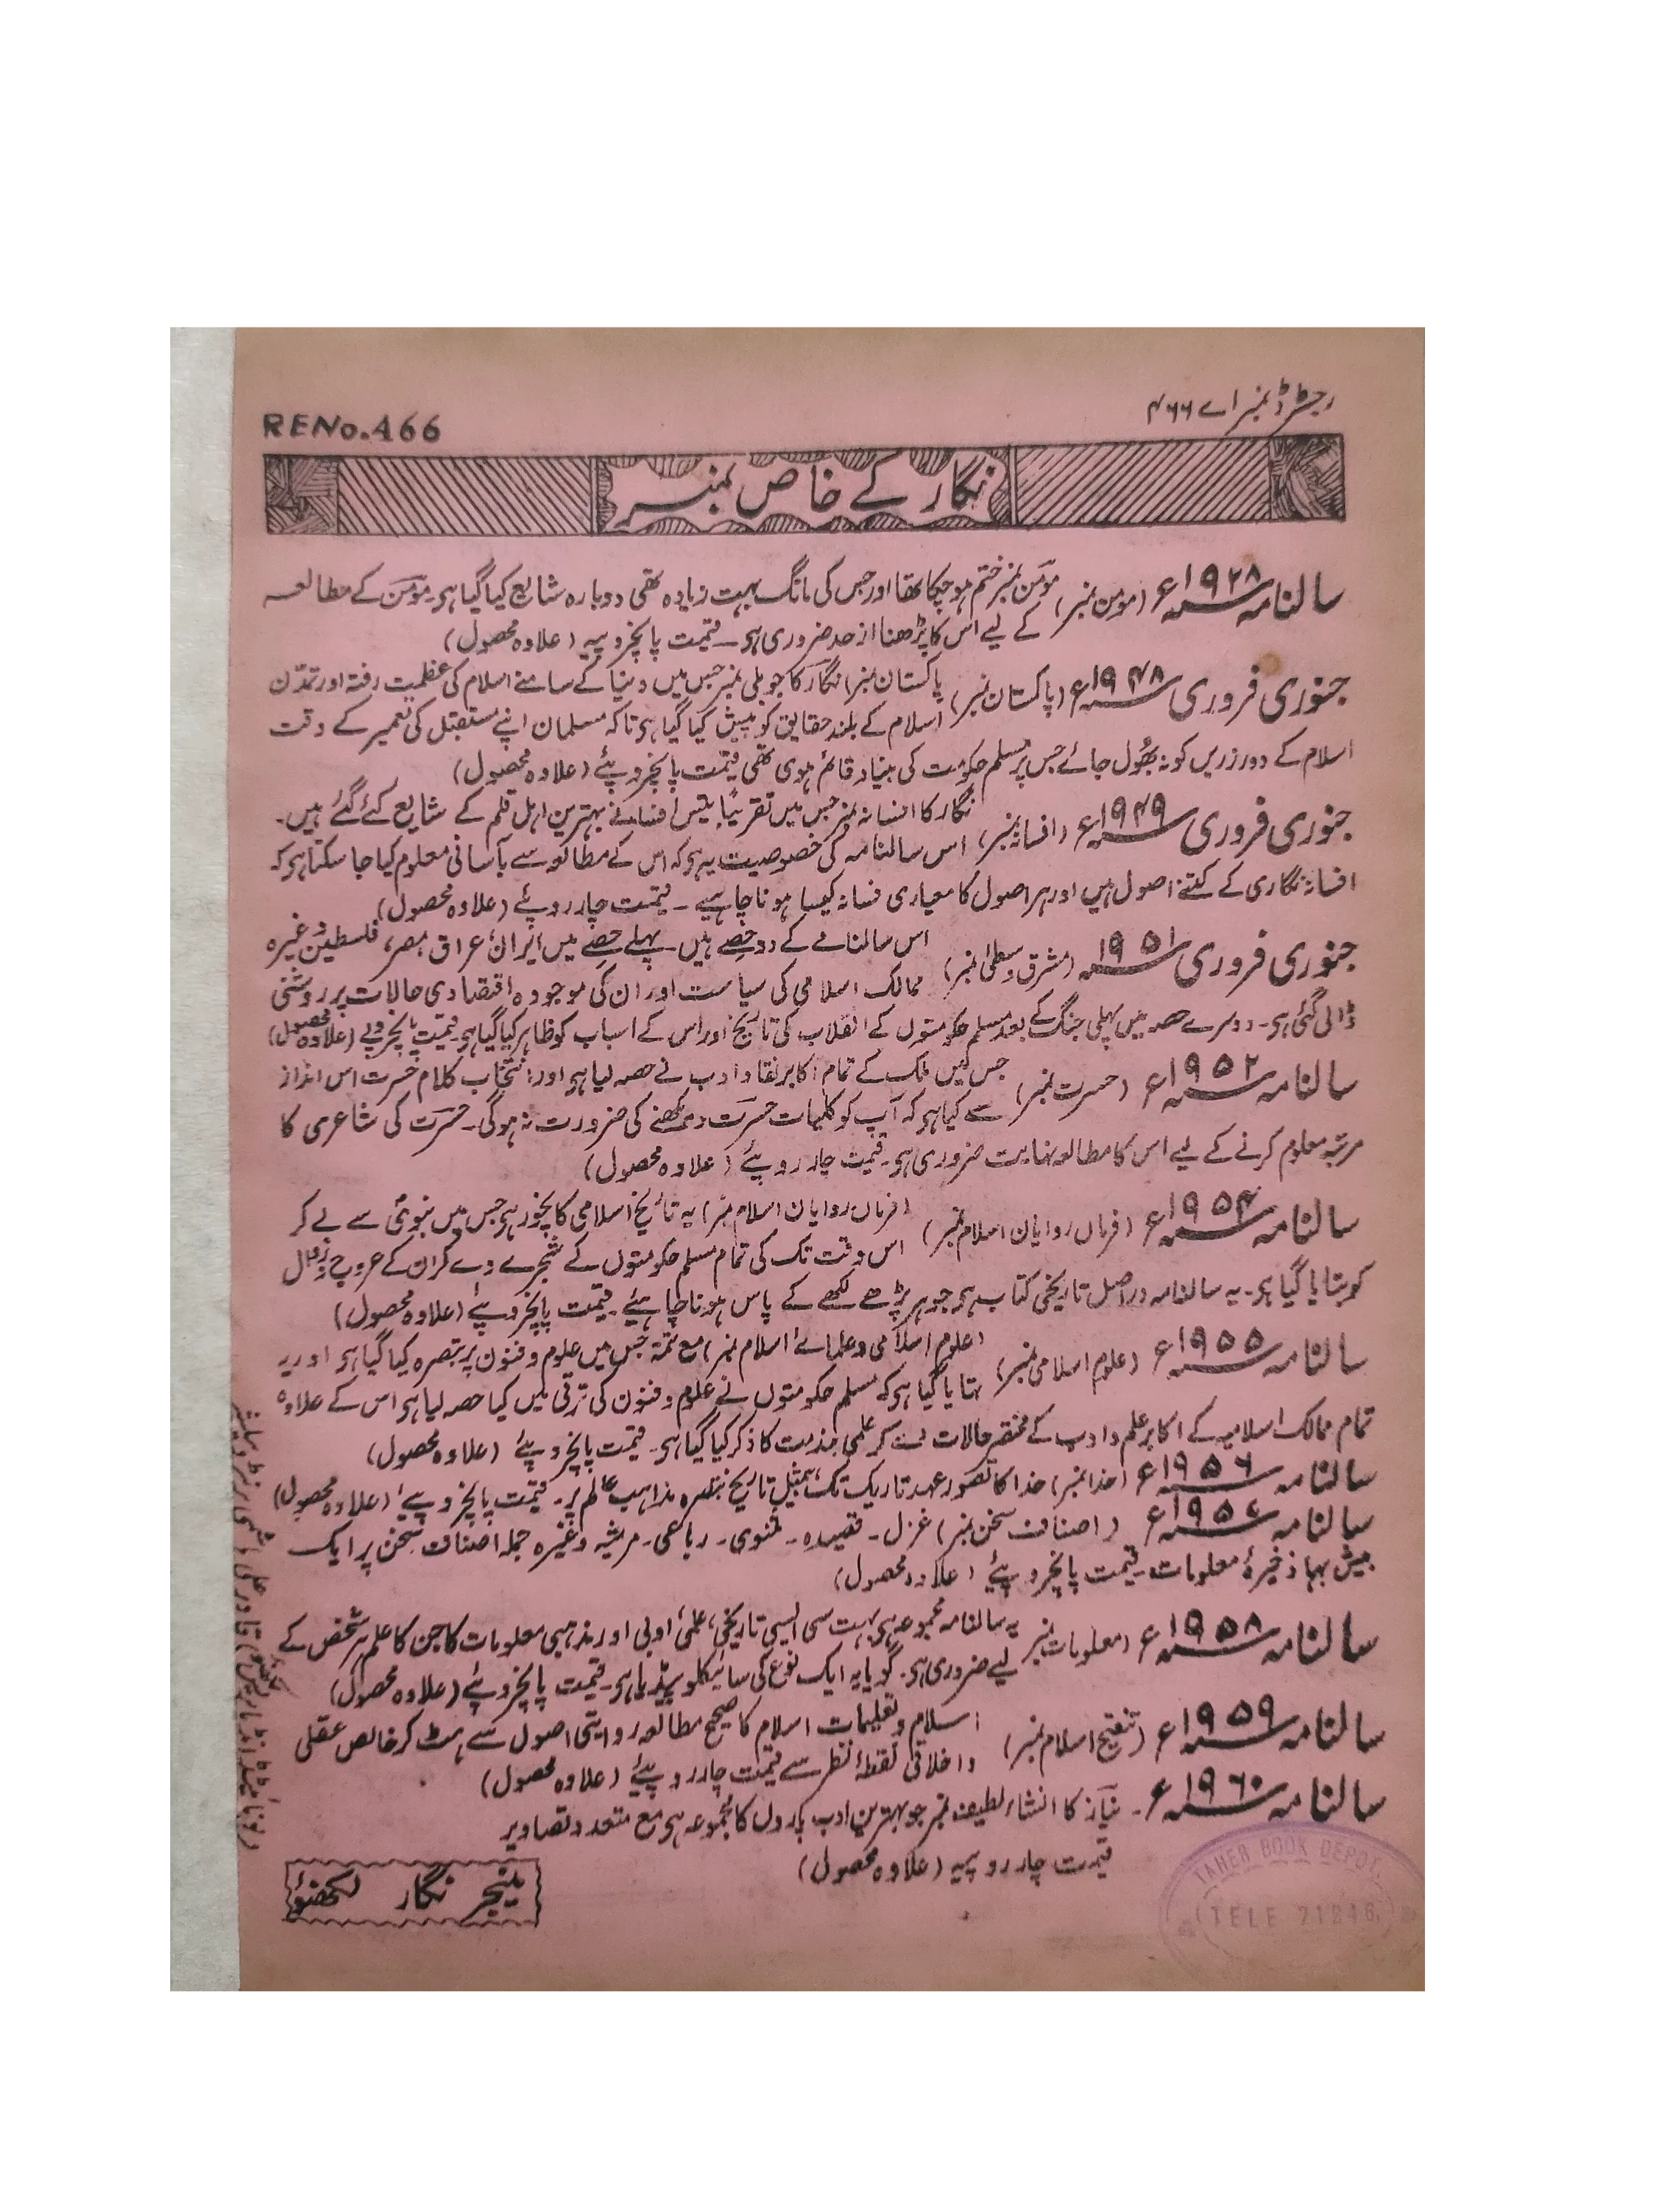 رجسٹرڈ نمبر اے ۴۶۶
RENo.466
نگار کے خاص نمبر
سالنامہ ۱۹۲۸ء (مومن نمبر) مومن نمبر ختم ہوچکا تھا اور جس کی مانگ بہت زیادہ تھی دوبارہ شایع کیا گیا ہی۔ مومن کے مطالعہ
کے لیے اس کا پڑھنا از حد ضروری ہی۔ قیمت پانچروپیہ (علاوہ محصول)
جنوری فروری ۱۹۴۸ء (پاکستان نمبر) پاکستان نمبر) نگار کا جوبلی نمبر جس میں دنیا کے سامنے اسلام کی عظمت رفتہ اور تمدّن
اسلام کے بلند حقایق کو پیش کیا گیا ہی تاکہ مسلمان اپنے مستقبل کی تعمیر کے وقت
اسلام کے دور زریں کو نہ بھول جائے جس پر مسلم حکومت کی بنیاد قائم ہوی تھی قیمت پانچروپئے (علاوہ محصول)
جنوری فروری ۱۹۴۹ء (افسانہ نمبر) نگار کا افسانہ نمبر جس میں تقریباً بیس افسانے بہترین اہل قلم کے شایع کئے گئے ہیں۔
اس سالنامہ کی خصوصیت یہ ہو کہ اس کے مطالعہ سے بآسانی معلوم کیا جا سکتا ہو کہ
افسانہ نگاری کے کتنے اصول ہیں اور ہر اصول کا معیاری فسانہ کیسا ہونا چاہیے۔ قیمت چار روپئے (علاوہ محصول)
جنوری فروری ۱۹۵۱ (مشرق وسطیٰ نمبر) اس سالنامے کے دو حصے ہیں۔ پہلے حصے میں ایران، عراق، مصر، فلسطین وغیرہ
ممالک اسلامی کی سیاست اور ان کی موجودہ اقتصادی حالات پر روشنی
ڈالی گئی ہی۔ دوسرے حصہ میں پہلی جنگ کے بعد مسلم حکومتوں کے انقلاب کی تاریخ اور اس کے اسباب کو ظاہر کیا گیا ہی۔ قیمت پانچروپے (علاوہ محصول)
سالنامہ ۱۹۵۲ء (حسرت نمبر) جس میں ملک کے تمام اکابر نقاد ادب نے حصہ لیا ہو اور انتخاب کلام حسرت اس انداز
سے کیا ہو کہ آپ کو کلیات حسرت دیکھنے کی ضرورت نہ ہوگی۔ حسرت کی شاعری کا
مرتبہ معلوم کرنے کے لیے اس کا مطالعہ نہایت ضروری ہی۔ قیمت چار روپئے (علاوہ محصول)
سالنامہ ۱۹۵۴ء (فرماں روایان اسلام نمبر) (فرماں روایان اسلام نمبر) یہ تاریخ اسلامی کا نچوڑ ہی جس میں نبوی سے لے کر
اس وقت تک کی تمام مسلم حکومتوں کے شجرے دے کر ان کے عروج و زوال
کو بتایا گیا ہو۔ یہ سالنامہ دراصل تاریخی کتاب ہی جو ہر پڑھے لکھے کے پاس ہونا چاہئیے۔ قیمت پانچروپئے (علاوہ محصول)
سالنامہ ۱۹۵۵ء (علوم اسلامی نمبر) (علوم اسلامی و علمائے اسلام نمبر) مع تتمہ جس میں علوم و فنون پر تبصرہ کیا گیا ہو اور یہ
بتایا گیا ہو کہ مسلم حکومتوں نے علوم و فنون کی ترقی میں کیا حصہ لیا ہو اس کے علاوہ
تمام ممالک اسلامیہ کے اکابر علم و ادب کے مختصر حالات کر علمی خدمت کا ذکر کیا گیا ہی۔ قیمت پانچروپئے (علاوہ محصول)
سالنامہ ۱۹۵۶ء (خدا نمبر) خدا کا تصور عہد تاریک تک، تاریخ تبصرہ مذاہب عالم پر۔ قیمت پانچروپیے (علاوہ محصول)
سالنامہ ۱۹۵۷ء (اصناف سخن نمبر) غزل۔ قصیدہ۔ مثنوی۔ رباعی۔ مرثیہ وغیرہ جملہ اصناف سخن پر ایک
بیش بہا ذخیرۂ معلومات۔ قیمت پانچروپئے (علاوہ محصول)
سالنامہ ۱۹۵۸ء (معلومات نمبر) یہ سالنامہ مجموعہ ہی بہت سی ایسی تاریخی، علمی، ادبی اور مذہبی معلومات کا جن کا علم ہر شخص کے
لیے ضروری ہی۔ گویا یہ ایک نوع کی سائیکلوپیڈیا ہی۔ قیمت پانچروپئے (علاوہ محصول)
سالنامہ ۱۹۵۹ء (تنقیح اسلام نمبر) اسلام و تعلیمات اسلام کا صحیح مطالعہ روایتی اصول سے ہٹ کر خالص عقلی
و اخلاقی نقطۂ نظر سے قیمت چار روپئے (علاوہ محصول)
سالنامہ ۱۹۶۰ء۔ نیاز کا انشاء لطیف نمبر جو بہترین ادب پاروں کا مجموعہ ہی مع متعدد تصاویر
قیمت چار روپیہ (علاوہ محصول)
منیجر نگار لکھنؤ
TAHER BOOK DEPOT,
TELE 21246,